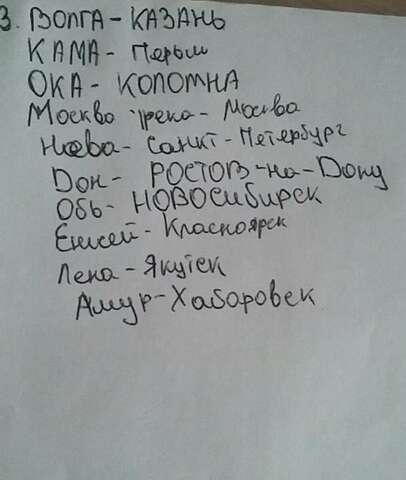 3. ВОЛГА - КАЗАНЬ
КАМА - Пермь
ОКА - КОЛОМНА
Москва река - Москва
Нева - Санкт - Петербург
Дон - РОСТОВ -на- Дону
Обь - НОВОСибирск
Енисей - Красноярск
Лена - Якутск
Амур - Хабаровск